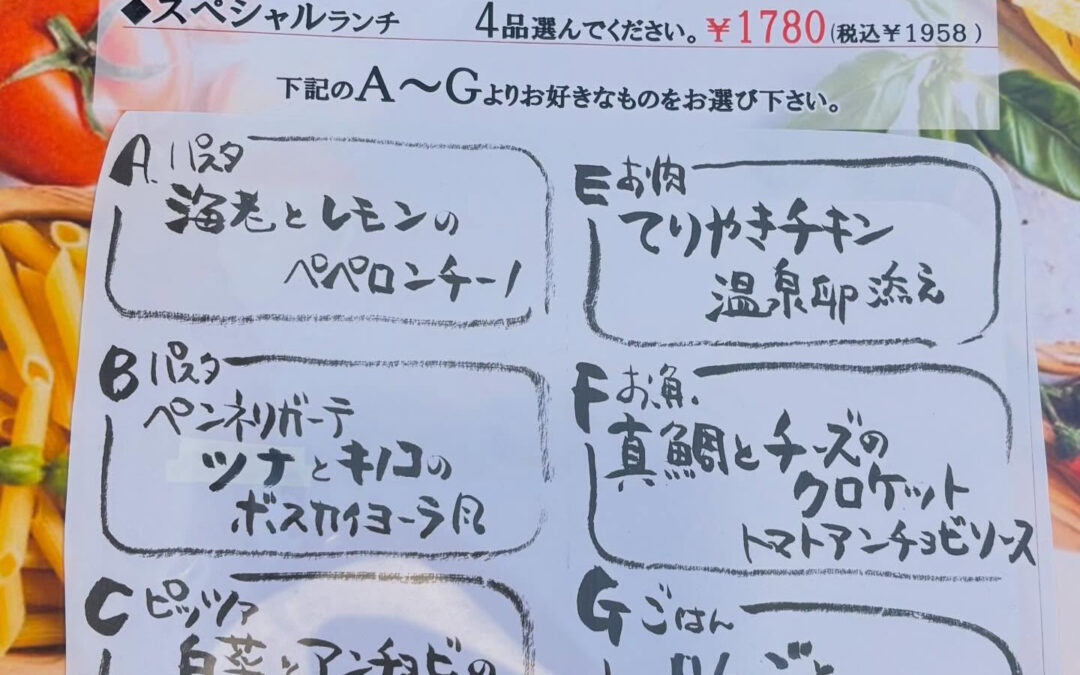 ◆スペシャルランチ 4品選んでください。¥1780(税込¥1958)
下記のA〜Gよりお好きなものをお選び下さい。
A. パスタ
海老とレモンの
ペペロンチーノ
B パスタ
ペンネリガーテ
ツナとキノコの
ボスカイヨーラ風
C ピッツァ
白菜とアンチョビの
E お肉
てりやきチキン
温泉卵添え
F お魚
真鯛とチーズの
クロケット
トマトアンチョビソース
G ごはん